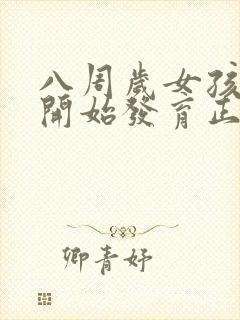 八周歲女孩
開始發育正
卿青妤